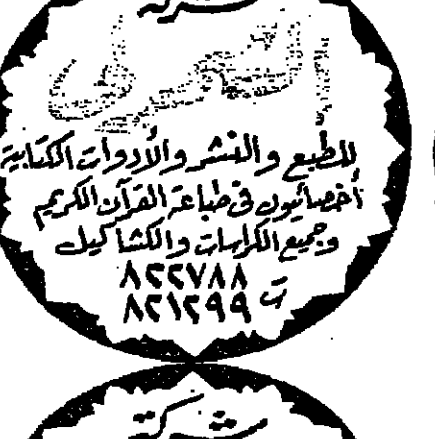 شركة
للطبع والنشر والأدوات الكتابية
أخصائيون في طباعة القرآن الكريم
وجميع الكراسات والكشاكيل
٨٢٢٧٨٨
ت ٨٢١٢٩٩
شركة